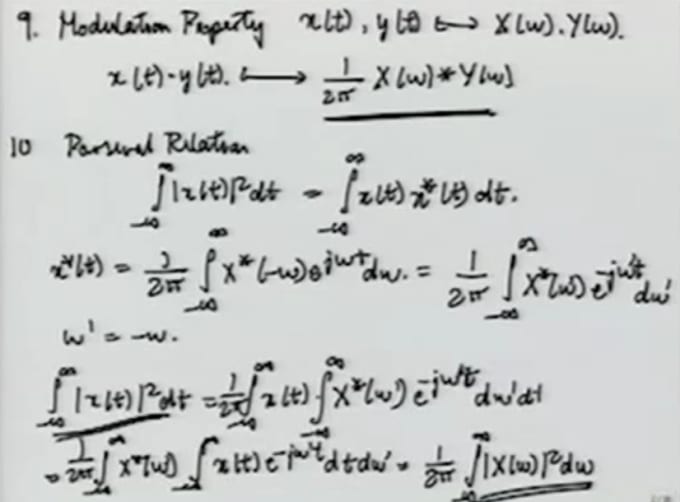 9. Modulation Property x(t), y(t) ⟷ X(ω), Y(ω).
x(t)·y(t). ⟷ 1/2π X(ω)*Y(ω)
10 Parseval Relation
∫_{-∞}^{∞} |x(t)|² dt = ∫_{-∞}^{∞} x(t) x*(t) dt.
x*(t) = 1/2π ∫_{-∞}^{∞} X*(-ω) e^{jωt} dω. = 1/2π ∫_{-∞}^{∞} X*(ω') e^{-jω't} dω'
ω' = -ω.
∫_{-∞}^{∞} |x(t)|² dt = 1/2π ∫_{-∞}^{∞} x(t) ∫_{-∞}^{∞} X*(ω') e^{-jω't} dω' dt
= 1/2π ∫_{-∞}^{∞} X*(ω') ∫_{-∞}^{∞} x(t) e^{-jω't} dt dω' = 1/2π ∫_{-∞}^{∞} |X(ω)|² dω